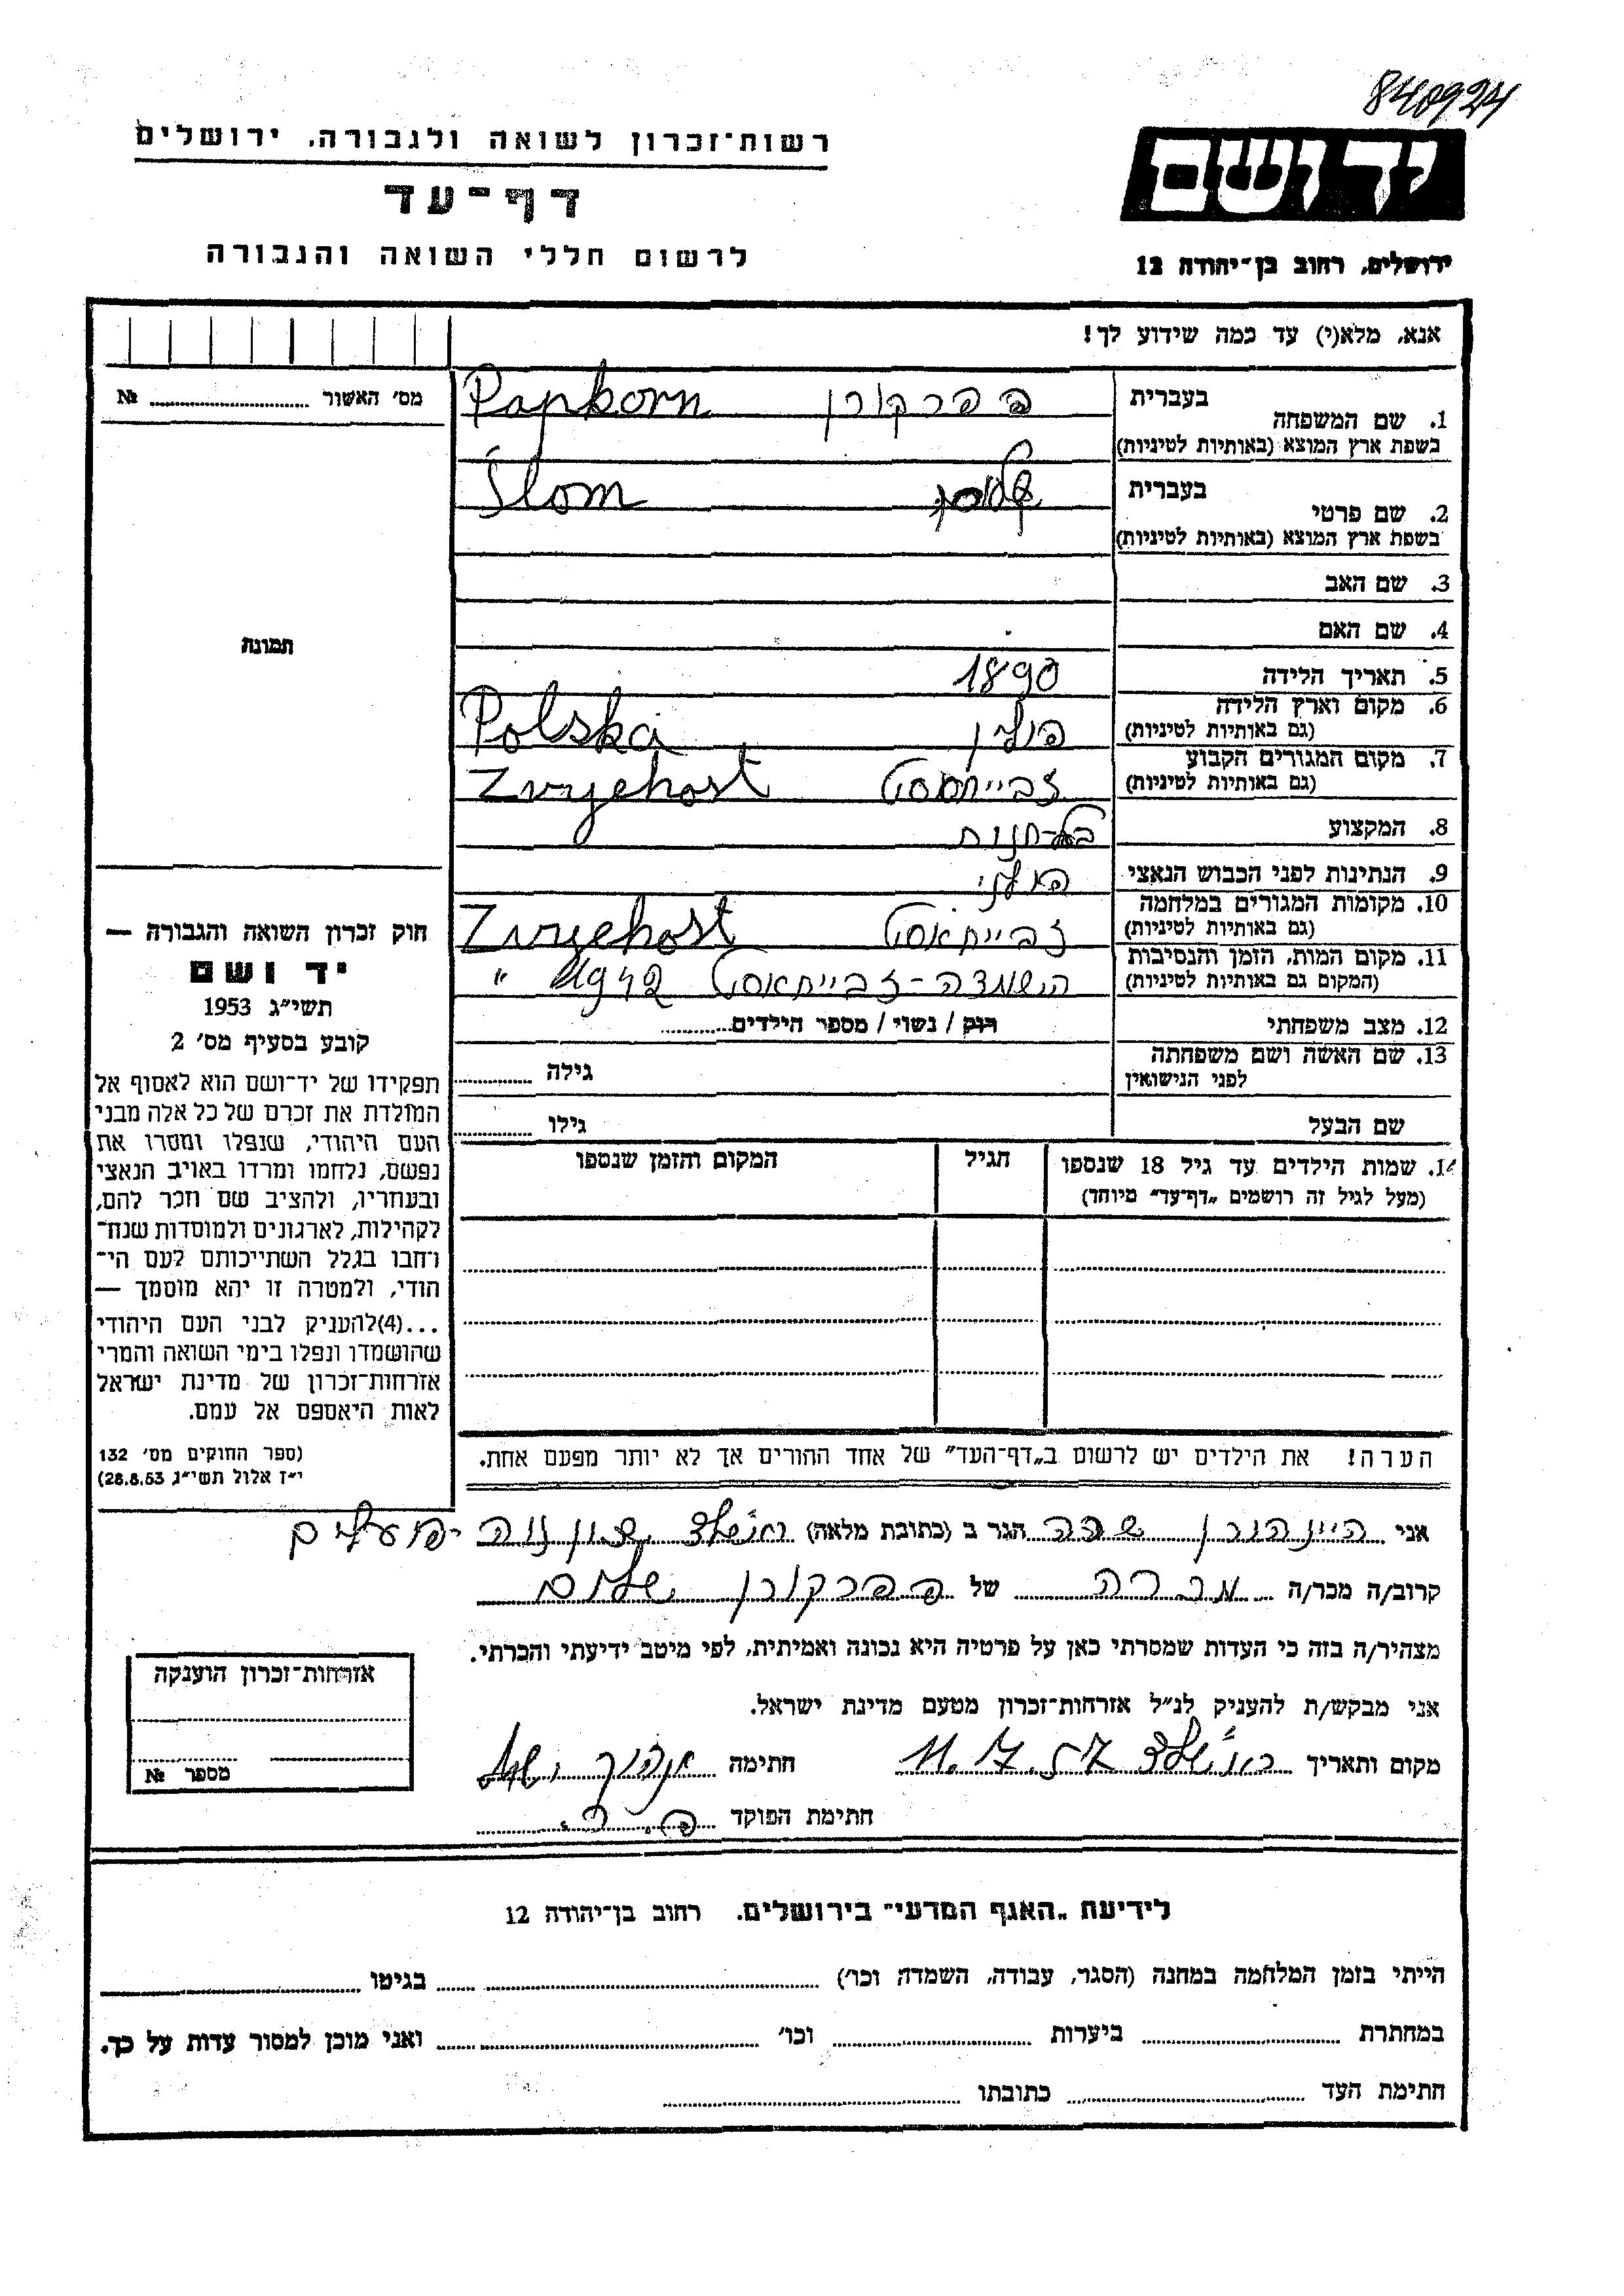 840924
רשות־זכרון לשואה ולגבורה, ירושלים
דף־עד
לרשום חללי השואה והגבורה
יד ושם
ירושלים, רחוב בן־יהודה 12
אנא, מלא(י) עד כמה שידוע לך!
מס׳ האשור № 
תמונה
1. שם המשפחה בעברית פפרקורן
בשפת ארץ המוצא (באותיות לטיניות) Papkorn
2. שם פרטי בעברית
בשפת ארץ המוצא (באותיות לטיניות) Ślom
3. שם האב
4. שם האם
5. תאריך הלידה 1890
6. מקום וארץ הלידה (גם באותיות לטיניות) פולין Polska
7. מקום המגורים הקבוע (גם באותיות לטיניות) זבייחסט Zvyehost
8. המקצוע בעל-חנות
9. הנתינות לפני הכבוש הנאצי פולני
10. מקומות המגורים במלחמה (גם באותיות לטיניות) זבייחאסט Zvyehost
11. מקום המות, הזמן והנסיבות (המקום גם באותיות לטיניות) הישמדה - זבייחאסט 1942 "
12. מצב משפחתי רוק / נשוי / מספר הילדים
13. שם האשה ושם משפחתה לפני הנישואין גילה
שם הבעל גילו
14. שמות הילדים עד גיל 18 שנספו הגיל המקום והזמן שנספו
(מעל לגיל זה רושמים „דף־עד״ מיוחד)
הערה! את הילדים יש לרשום ב„דף־העד״ של אחד ההורים אך לא יותר מפעם אחת.
חוק זכרון השואה והגבורה —
יד ושם
תשי״ג 1953
קובע בסעיף מס׳ 2
תפקידו של יד־ושם הוא לאסוף אל
המולדת את זכרם של כל אלה מבני
העם היהודי, שנפלו ומסרו את
נפשם, נלחמו ומרדו באויב הנאצי
ובעוזריו, ולהציב שם וזכר להם,
לקהילות, לארגונים ולמוסדות שנח־
רבו בגלל השתייכותם לעם הי־
הודי, ולמטרה זו יהא מוסמך —
...(4)להעניק לבני העם היהודי
שהושמדו ונפלו בימי השואה והמרי
אזרחות־זכרון של מדינת ישראל
לאות היאספם אל עמם.
(ספר החוקים מס׳ 132
י״ז אלול תשי״ג 28.8.53)
אני היינהורן שרה הגר ב (כתובת מלאה)
קרוב/ה מכר/ה מכרה של פפרקורן שלום
מצהיר/ה בזה כי העדות שמסרתי כאן על פרטיה היא נכונה ואמיתית, לפי מיטב ידיעתי והכרתי.
אני מבקש/ת להעניק לנ״ל אזרחות־זכרון מטעם מדינת ישראל.
מקום ותאריך 11.7.57 חתימה
חתימת הפוקד
אזרחות־זכרון הוענקה
מספר №
לידיעת „האגף המדעי״ בירושלים, רחוב בן־יהודה 12
הייתי בזמן המלחמה במחנה (הסגר, עבודה, השמדה וכו׳) בגיטו
במחתרת ביערות וכו׳ ואני מוכן למסור עדות על כך.
חתימת העד כתובתו